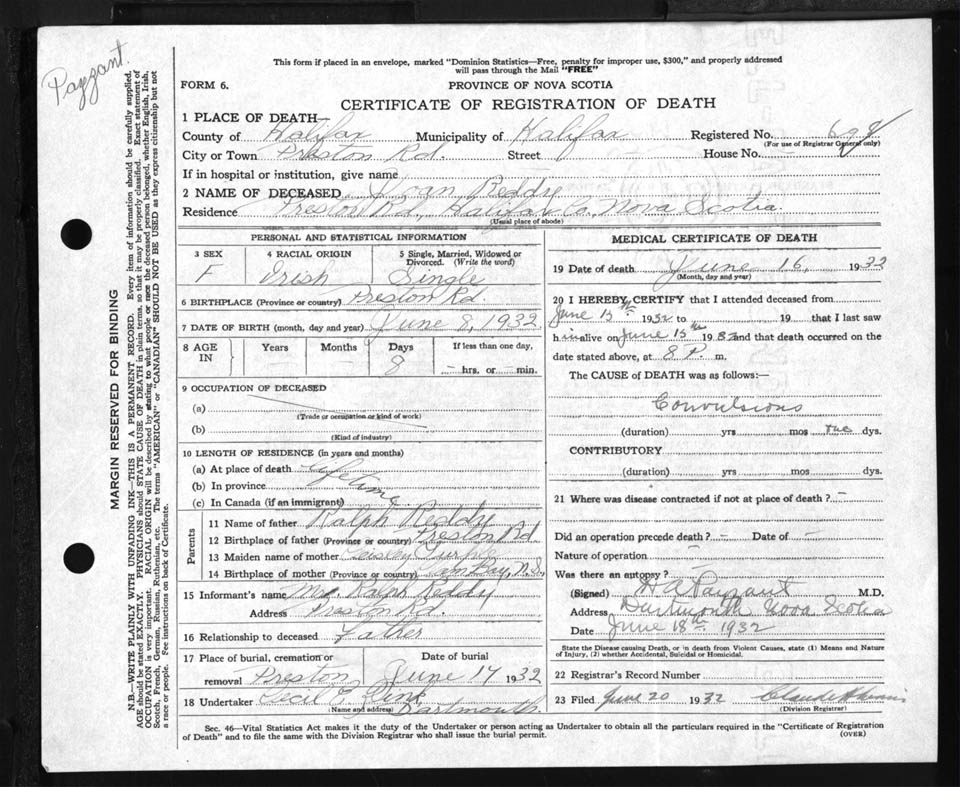 Payzant.
This form if placed in an envelope, marked "Dominion Statistics—Free, penalty for improper use, $300," and properly addressed
will pass through the Mail "FREE"
FORM 6.
PROVINCE OF NOVA SCOTIA
CERTIFICATE OF REGISTRATION OF DEATH
1 PLACE OF DEATH—
County of Halifax Municipality of Halifax Registered No.
(For use of Registrar General only)
City or Town Preston Rd. Street — House No. —
If in hospital or institution, give name —
2 NAME OF DECEASED Joan Reddy
Residence Preston Rd, Halifax Co. Nova Scotia.
(Usual place of abode)
PERSONAL AND STATISTICAL INFORMATION
3 SEX 4 RACIAL ORIGIN 5 Single, Married, Widowed or
Divorced. (Write the word)
F Irish Single
6 BIRTHPLACE (Province or country) Preston Rd.
7 DATE OF BIRTH (month, day and year) June 8, 1932
8 AGE IN Years Months Days If less than one day,
— — 8 — hrs. or — min.
9 OCCUPATION OF DECEASED
(a)
(Trade or occupation or kind of work)
(b)
(Kind of industry)
10 LENGTH OF RESIDENCE (in years and months)
(a) At place of death Lifetime
(b) In province
(c) In Canada (if an immigrant)
Parents
11 Name of father Ralph Reddy
12 Birthplace of father (Province or country) Preston Rd.
13 Maiden name of mother
14 Birthplace of mother (Province or country) Bay, N.S.
15 Informant's name Mr. Ralph Reddy
Address Preston Rd.
16 Relationship to deceased Father
17 Place of burial, cremation or removal Date of burial
Preston June 17 1932
18 Undertaker Cecil E. Zink
(Name and address) Dartmouth
MEDICAL CERTIFICATE OF DEATH
19 Date of death June 16, 1932
(Month, day and year)
20 I HEREBY CERTIFY that I attended deceased from
June 15th 1932 to 19 that I last saw
h im alive on June 15th 1932 and that death occurred on the
date stated above, at 8 P. m.
The CAUSE of DEATH was as follows:—
Convulsions
(duration) yrs mos one dys.
CONTRIBUTORY
(duration) yrs mos dys.
21 Where was disease contracted if not at place of death? —
Did an operation precede death? — Date of —
Nature of operation —
Was there an autopsy?
(Signed) H A Payzant M.D.
Address Dartmouth Nova Scotia
Date June 18th 1932
State the Disease causing Death, or in death from Violent Causes, state (1) Means and Nature
of Injury, (2) whether Accidental, Suicidal or Homicidal.
22 Registrar's Record Number
23 Filed June 20 1932
(Division Registrar)
Sec. 46—Vital Statistics Act makes it the duty of the Undertaker or person acting as Undertaker to obtain all the particulars required in the "Certificate of Registration
of Death" and to file the same with the Division Registrar who shall issue the burial permit. (OVER)
MARGIN RESERVED FOR BINDING
N.B.—WRITE PLAINLY WITH UNFADING INK—THIS IS A PERMANENT RECORD. Every item of information should be carefully supplied.
AGE should be stated EXACTLY. PHYSICIANS should STATE CAUSE OF DEATH in plain terms, so that it may be properly classified. Exact statement of
OCCUPATION is very important. RACIAL ORIGIN will be described by stating to what people or race the deceased person belonged, whether English, Irish,
Scotch, French, German, Russian, Ruthenian, etc. The terms "AMERICAN" or "CANADIAN" SHOULD NOT BE USED as they express citizenship but not
a race or people. See instructions on back of Certificate.